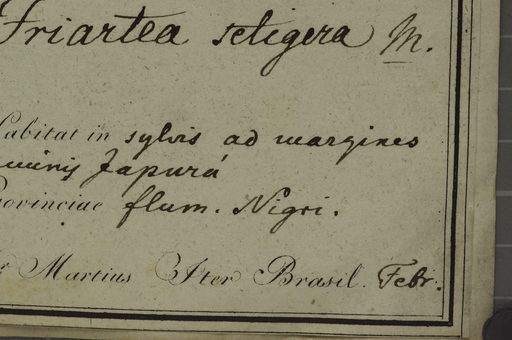 Iriartea setigera M.
Habitat in sylvis ad margines
fluminis Japurá
Provinciae flum. Nigri.
Dr Martius Iter Brasil. Febr.